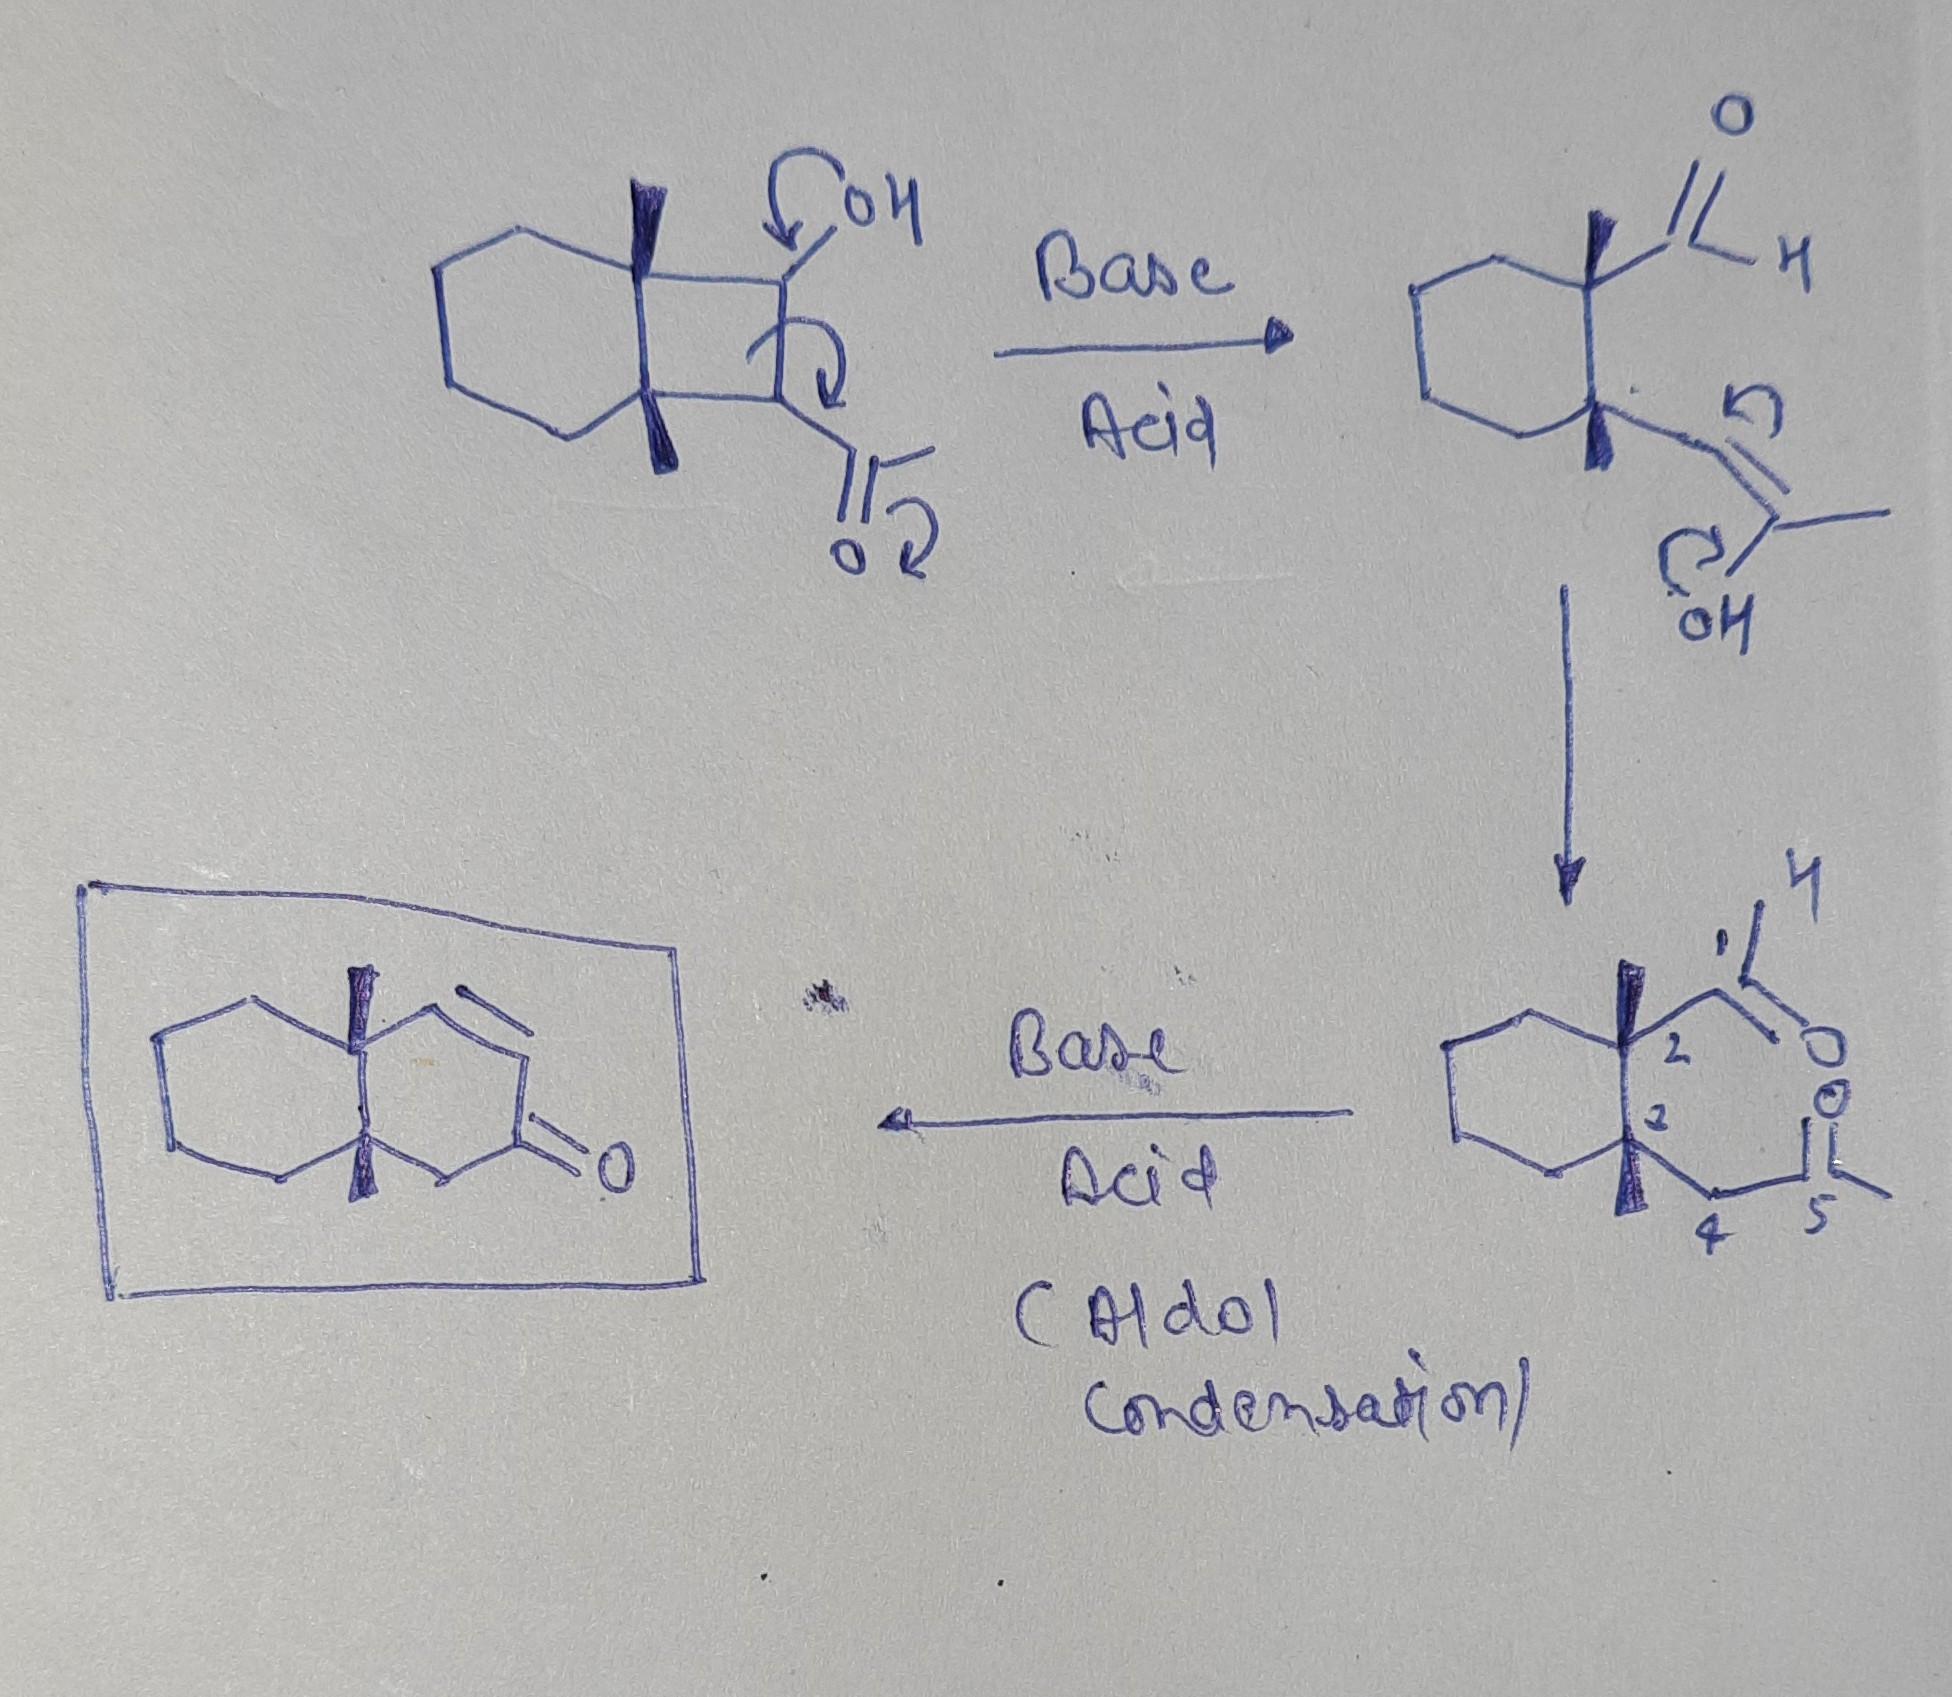 OH
Base
Acid
O
O
H
OH
H
1
2
O
O
2
4
5
Base
Acid
(Aldol
Condensation)
O